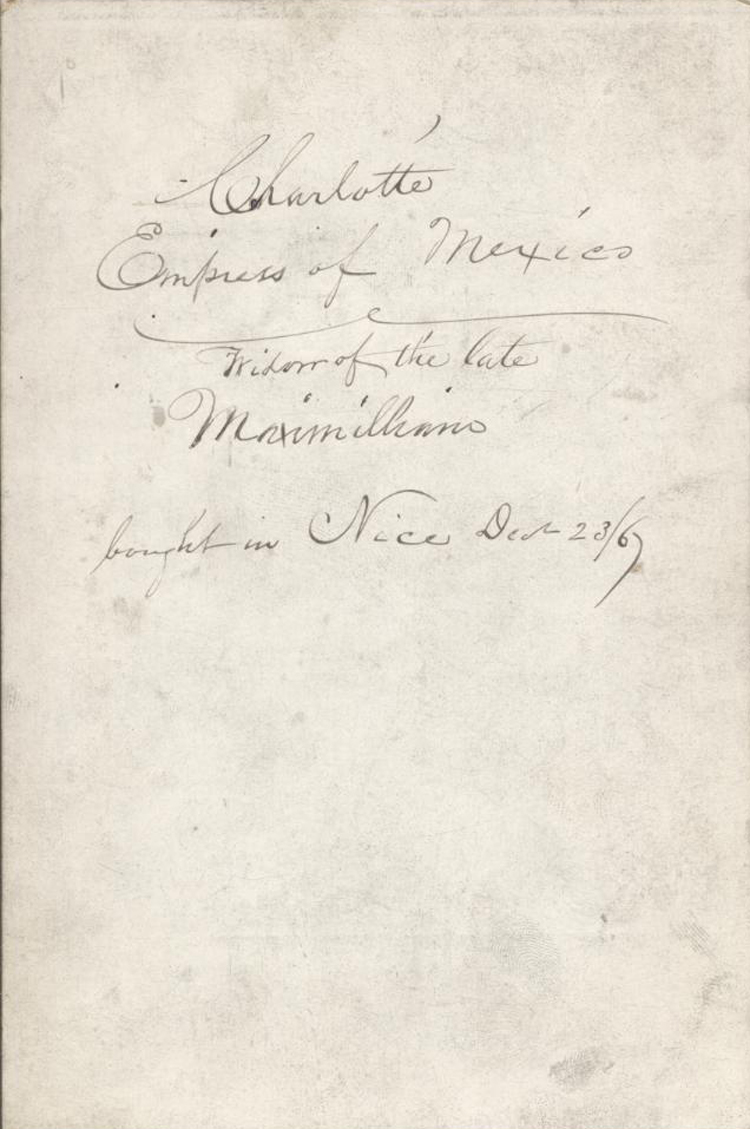 Charlotte
Empress of Mexico
Widow of the late
Maximilliano
bought in Nice Dec 23/67